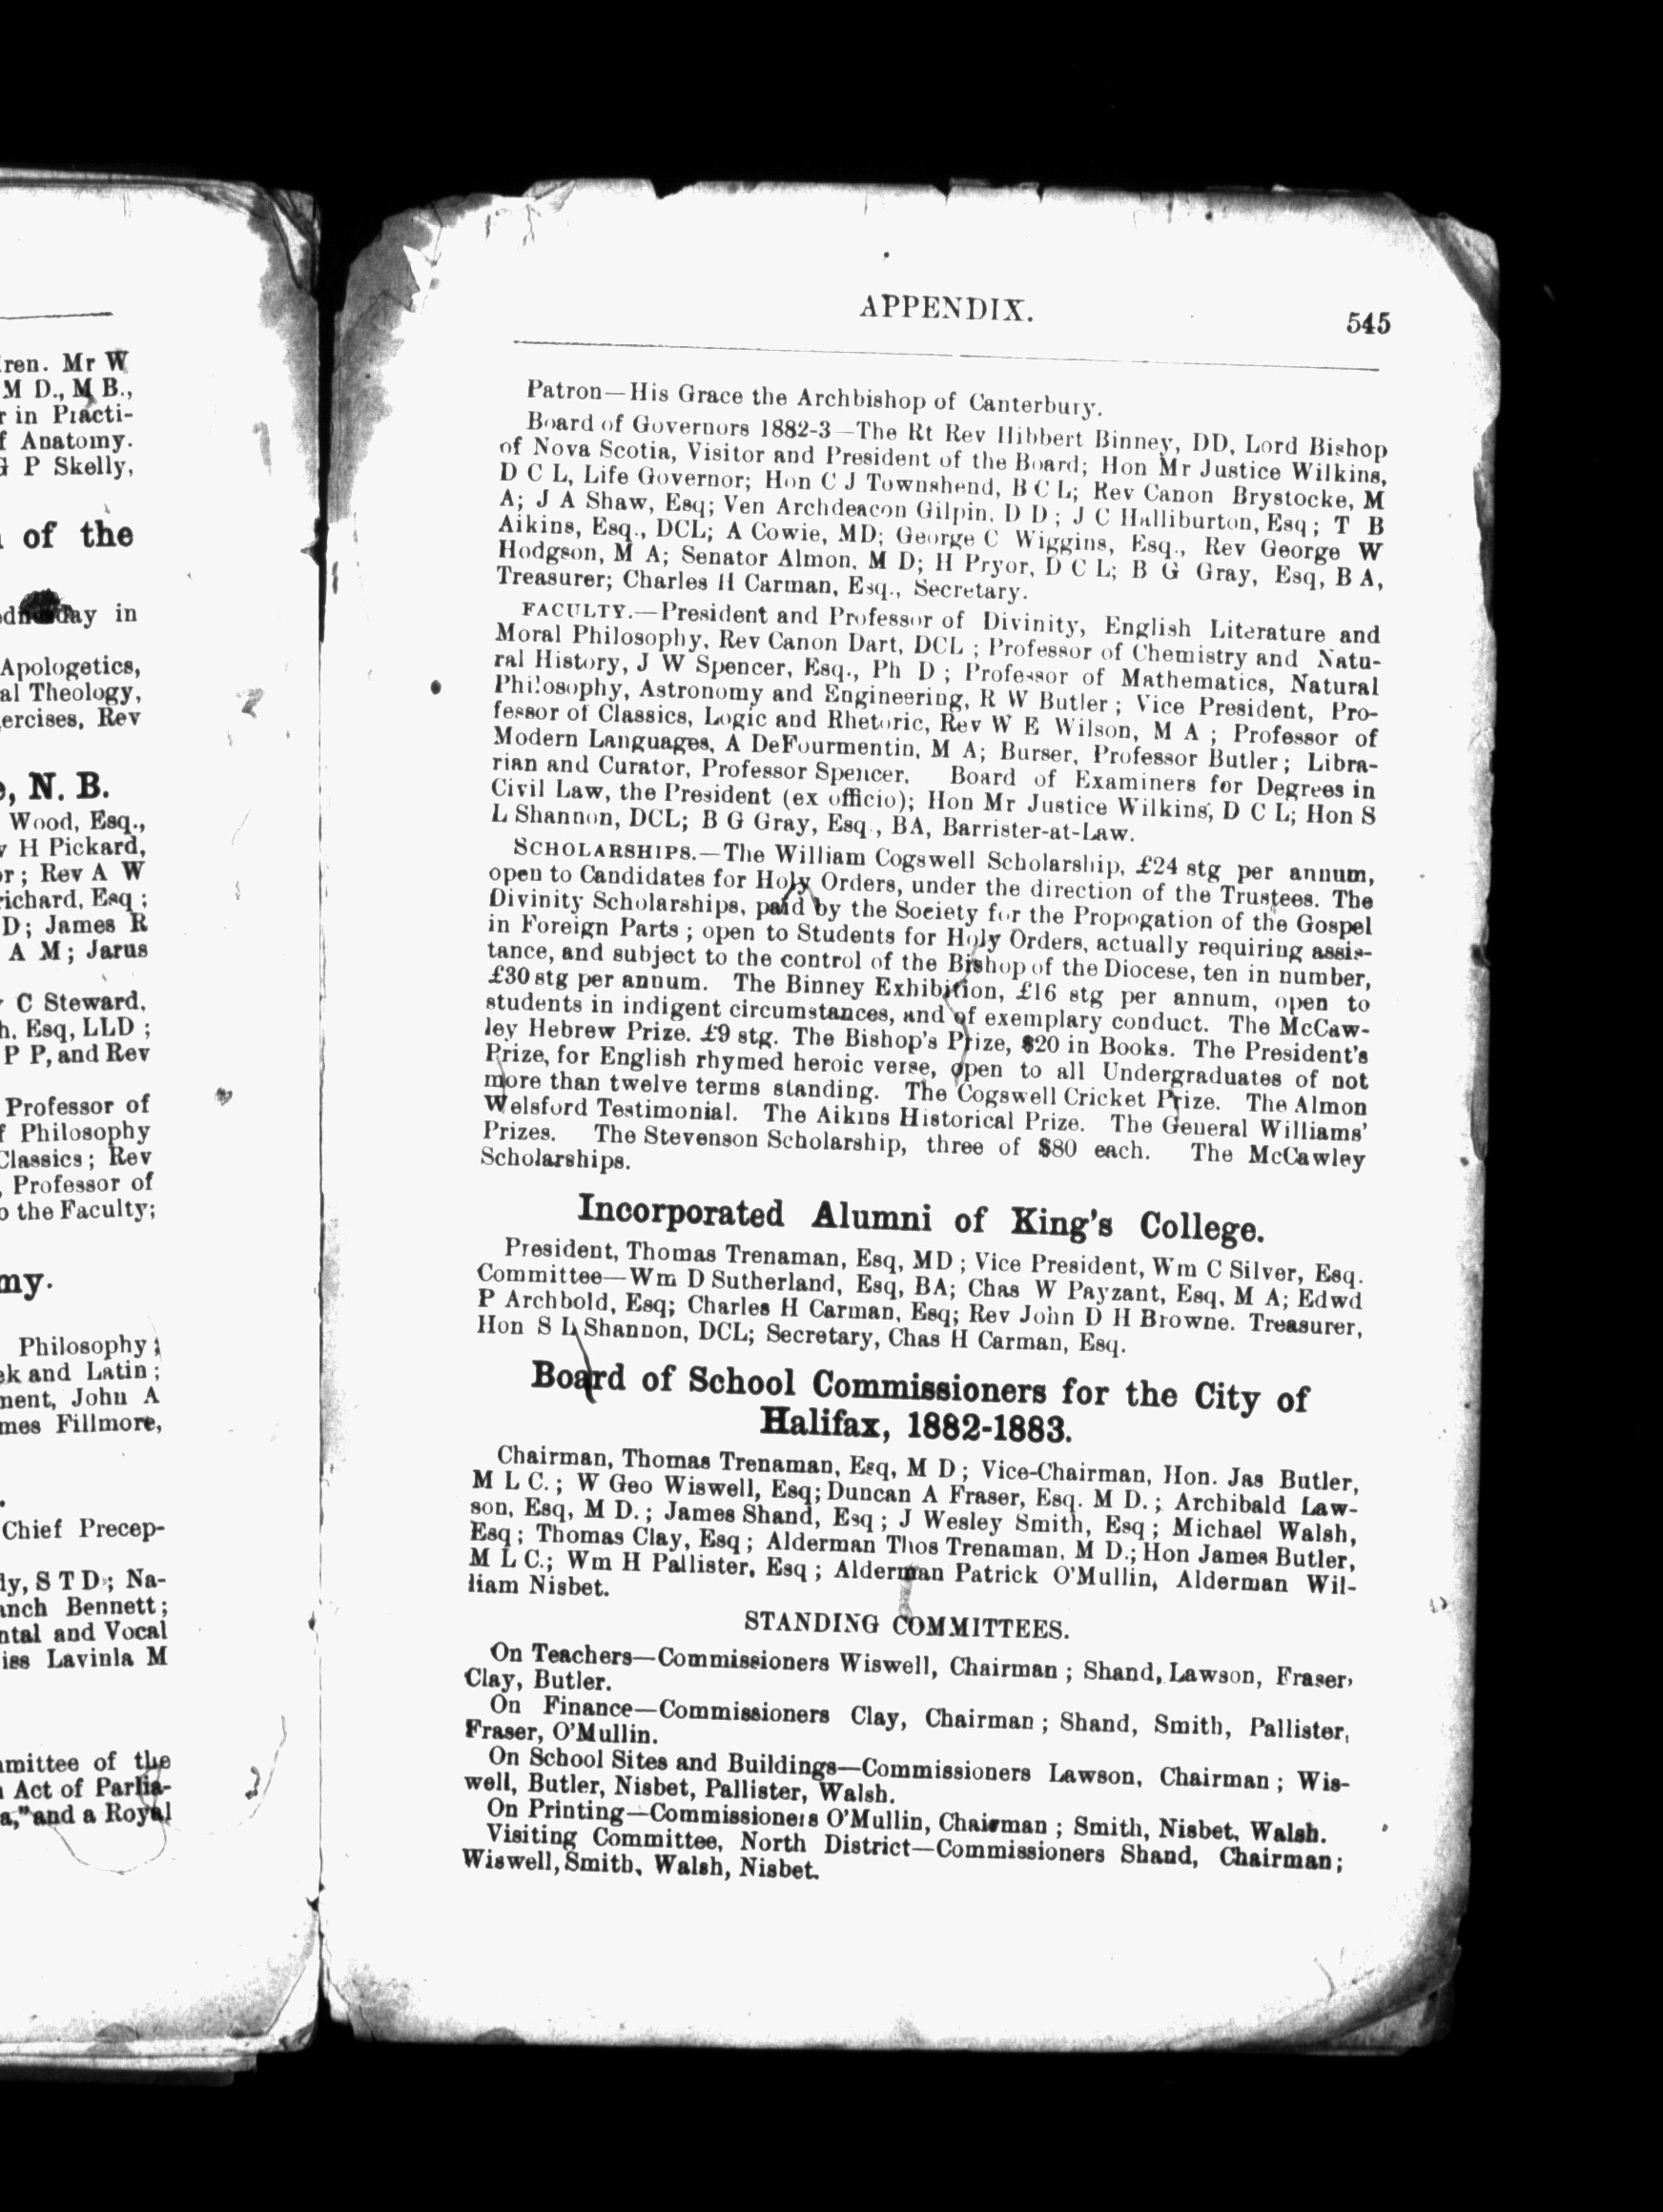 ren. Mr W
M D., M B.,
r in Practi-
f Anatomy.
G P Skelly,
of the
day in
Apologetics,
al Theology,
ercises, Rev
, N. B.
Wood, Esq.,
H Pickard,
or; Rev A W
richard, Esq;
D; James R
A M; Jarus
C Steward,
h, Esq, LLD;
P P, and Rev
Professor of
f Philosophy
Classics; Rev
, Professor of
o the Faculty;
my.
Philosophy;
ek and Latin;
ment, John A
mes Fillmore,
Chief Precep-
dy, S T D; Na-
anch Bennett;
ntal and Vocal
iss Lavinla M
mmittee of the
Act of Parlia-
a," and a Royal
APPENDIX. 545
Patron—His Grace the Archbishop of Canterbury.
Board of Governors 1882-3—The Rt Rev Hibbert Binney, DD, Lord Bishop
of Nova Scotia, Visitor and President of the Board; Hon Mr Justice Wilkins,
D C L, Life Governor; Hon C J Townshend, B C L; Rev Canon Brystocke, M
A; J A Shaw, Esq; Ven Archdeacon Gilpin, D D; J C Halliburton, Esq; T B
Aikins, Esq., DCL; A Cowie, MD; George C Wiggins, Esq., Rev George W
Hodgson, M A; Senator Almon, M D; H Pryor, D C L; B G Gray, Esq, B A,
Treasurer; Charles H Carman, Esq., Secretary.
FACULTY.—President and Professor of Divinity, English Literature and
Moral Philosophy, Rev Canon Dart, DCL; Professor of Chemistry and Natu-
ral History, J W Spencer, Esq., Ph D; Professor of Mathematics, Natural
Philosophy, Astronomy and Engineering, R W Butler; Vice President, Pro-
fessor of Classics, Logic and Rhetoric, Rev W E Wilson, M A; Professor of
Modern Languages, A DeFourmentin, M A; Burser, Professor Butler; Libra-
rian and Curator, Professor Spencer. Board of Examiners for Degrees in
Civil Law, the President (ex officio); Hon Mr Justice Wilkins, D C L; Hon S
L Shannon, DCL; B G Gray, Esq., BA, Barrister-at-Law.
SCHOLARSHIPS.—The William Cogswell Scholarship, £24 stg per annum,
open to Candidates for Holy Orders, under the direction of the Trustees. The
Divinity Scholarships, paid by the Society for the Propogation of the Gospel
in Foreign Parts; open to Students for Holy Orders, actually requiring assis-
tance, and subject to the control of the Bishop of the Diocese, ten in number,
£30 stg per annum. The Binney Exhibition, £16 stg per annum, open to
students in indigent circumstances, and of exemplary conduct. The McCaw-
ley Hebrew Prize. £9 stg. The Bishop's Prize, $20 in Books. The President's
Prize, for English rhymed heroic verse, open to all Undergraduates of not
more than twelve terms standing. The Cogswell Cricket Prize. The Almon
Welsford Testimonial. The Aikins Historical Prize. The General Williams'
Prizes. The Stevenson Scholarship, three of $80 each. The McCawley
Scholarships.
Incorporated Alumni of King's College.
President, Thomas Trenaman, Esq, MD; Vice President, Wm C Silver, Esq.
Committee—Wm D Sutherland, Esq, BA; Chas W Payzant, Esq, M A; Edwd
P Archbold, Esq; Charles H Carman, Esq; Rev John D H Browne. Treasurer,
Hon S L Shannon, DCL; Secretary, Chas H Carman, Esq.
Board of School Commissioners for the City of
Halifax, 1882-1883.
Chairman, Thomas Trenaman, Esq, M D; Vice-Chairman, Hon. Jas Butler,
M L C.; W Geo Wiswell, Esq; Duncan A Fraser, Esq. M D.; Archibald Law-
son, Esq, M D.; James Shand, Esq; J Wesley Smith, Esq; Michael Walsh,
Esq; Thomas Clay, Esq; Alderman Thos Trenaman, M D.; Hon James Butler,
M L C.; Wm H Pallister, Esq; Alderman Patrick O'Mullin, Alderman Wil-
liam Nisbet.
STANDING COMMITTEES.
On Teachers—Commissioners Wiswell, Chairman; Shand, Lawson, Fraser,
Clay, Butler.
On Finance—Commissioners Clay, Chairman; Shand, Smith, Pallister,
Fraser, O'Mullin.
On School Sites and Buildings—Commissioners Lawson, Chairman; Wis-
well, Butler, Nisbet, Pallister, Walsh.
On Printing—Commissioners O'Mullin, Chairman; Smith, Nisbet, Walsh.
Visiting Committee, North District—Commissioners Shand, Chairman;
Wiswell, Smith, Walsh, Nisbet.